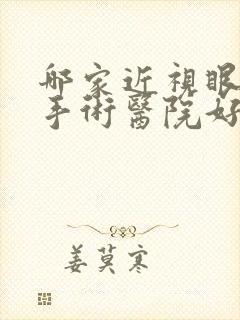 邮家近視眼
手術醫院好
姜莫寒